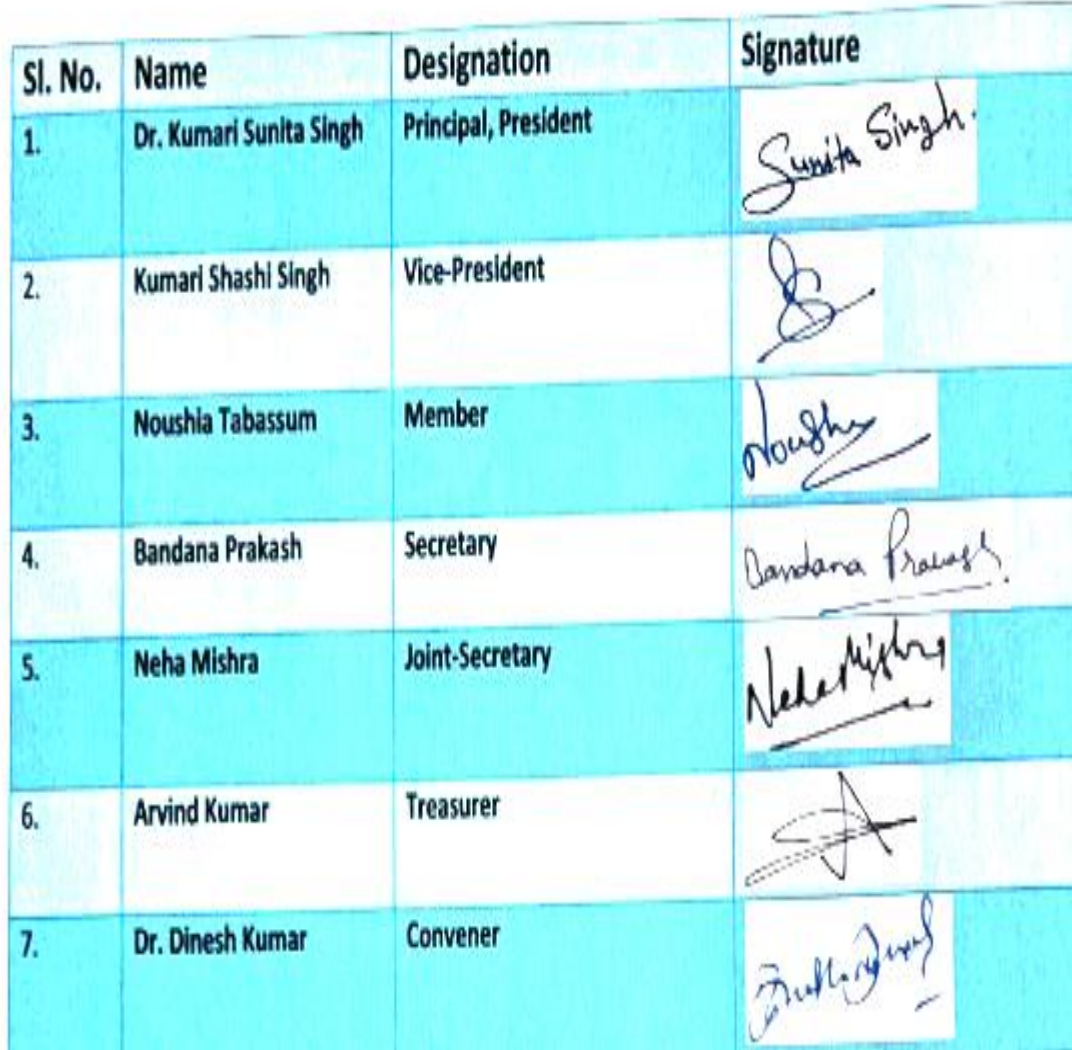 Sl. No. Name Designation Signature
1. Dr. Kumari Sunita Singh Principal, President Sunita Singh.
2. Kumari Shashi Singh Vice-President
3. Noushia Tabassum Member
4. Bandana Prakash Secretary Bandana Prakash
5. Neha Mishra Joint-Secretary Neha Mishra
6. Arvind Kumar Treasurer
7. Dr. Dinesh Kumar Convener